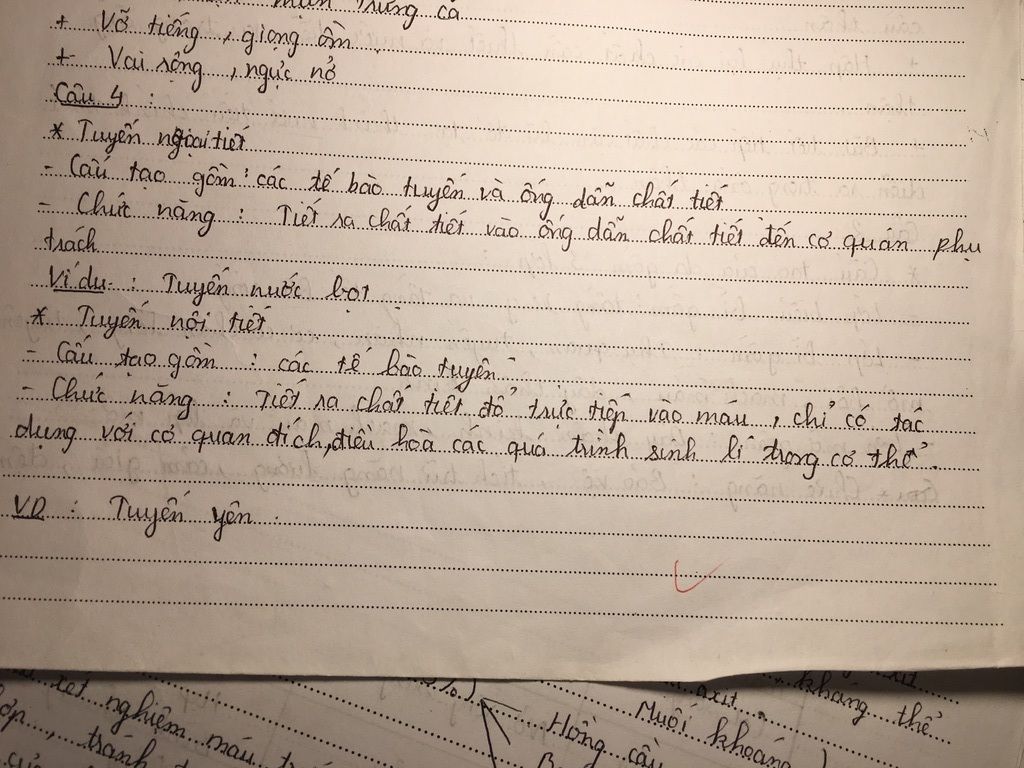 mụn trứng cá
+ Vỡ tiếng, giọng ồm
+ Vai rộng, ngực nở
Câu 4 :
* Tuyến ngoại tiết
- Cấu tạo gồm : các tế bào tuyến và ống dẫn chất tiết
- Chức năng : Tiết ra chất tiết vào ống dẫn chất tiết đến cơ quan phụ
trách
Ví dụ : Tuyến nước bọt
* Tuyến nội tiết
- Cấu tạo gồm : các tế bào tuyến
- Chức năng : Tiết ra chất tiết đổ trực tiếp vào máu, chỉ có tác
dụng với cơ quan đích, điều hoà các quá trình sinh lí trong cơ thể.
VD : Tuyến yên
xét nghiệm máu
tránh
Hồng cầu
Muối khoáng
axit
kháng thể